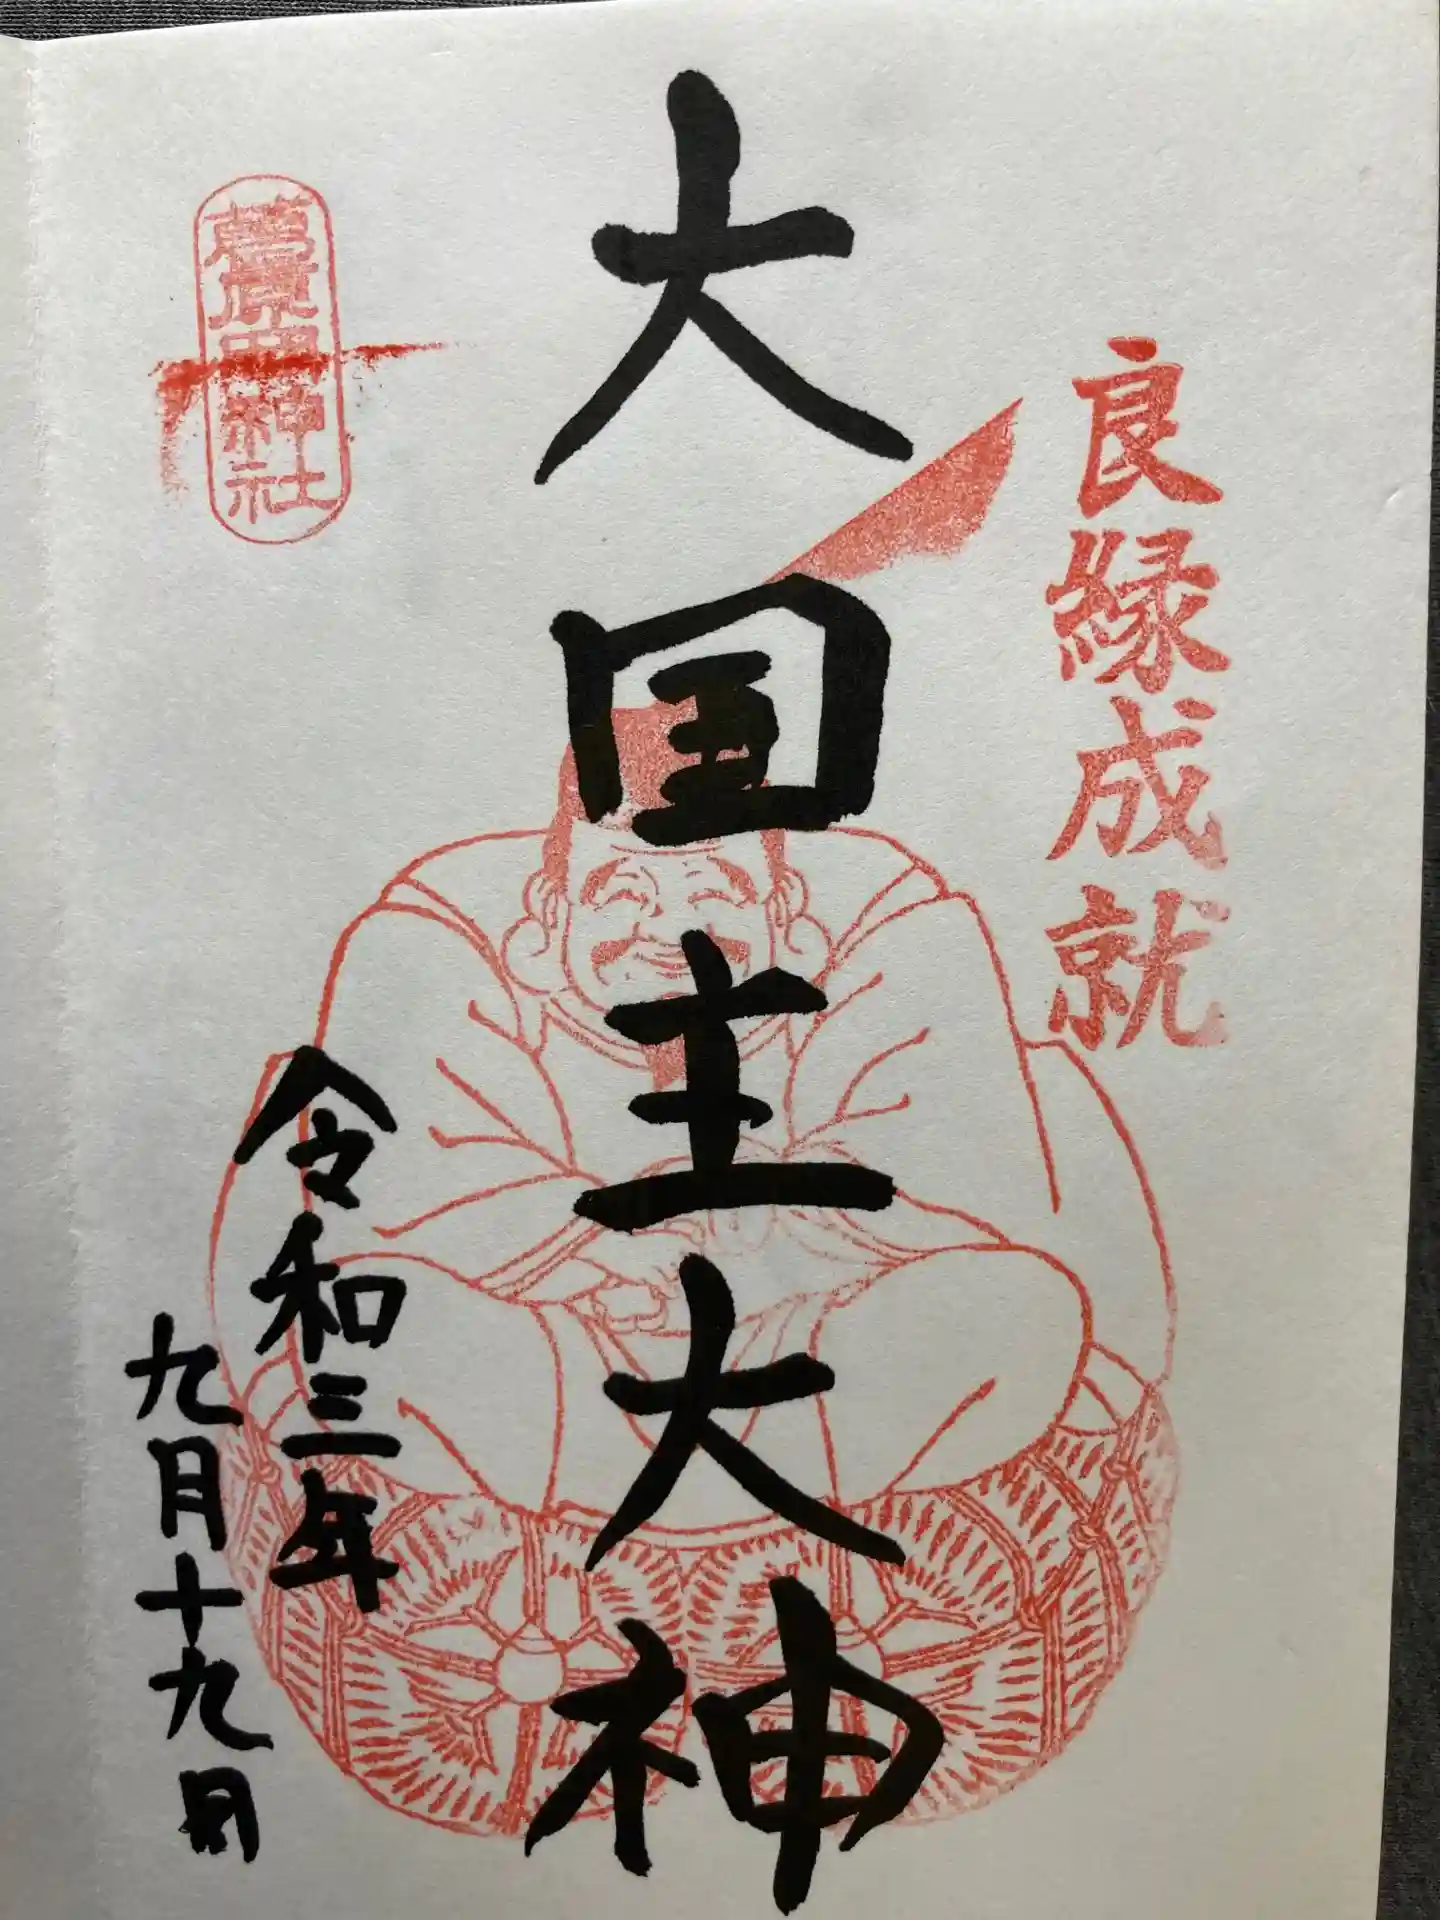 良縁成就
大国主大神
令和三年
九月十九日
神社